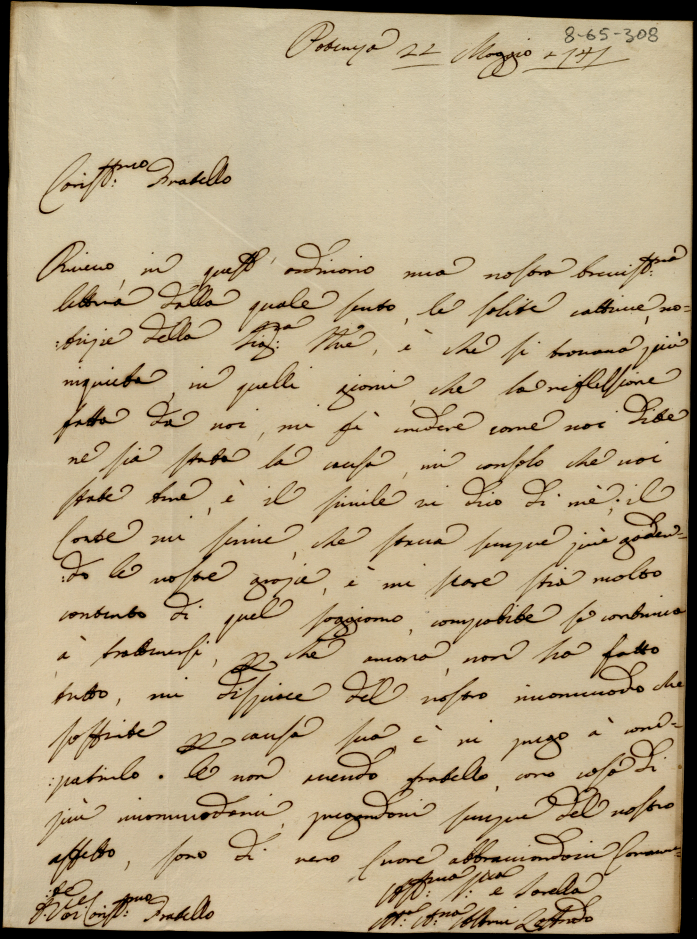 8-65-308
22 Maggio 1741
Cariss:mo Fratello
Ricevo, in quest' ordinario una vostra breviss:ma
lettera dalla quale sento, le solite cattive, no-
:tizie della Sig:ra Mre, è che si trovava più
inquieta, in quelli giorni, che la riflessione
fatta da voi, mi fà credere come voi dite
ne sia stata la causa, mi consolo che voi
state bene, è il simile vi dico di mè; il
Conte mi scrive, che stava sempre più goden-
:do le vostre grazie, è mi pare stia molto
contento di quel soggiorno, compatite se continua
à trattenersi, che ancora, non ha fatto
tutto, mi dispiace del vostro incommodo che
soffrite causa sua, è vi prego à com-
:patirlo. Se non avendo fratello, caro cosa di
più incommodarvi, pregandovi sempre del vostro
affetto, sono di vero Cuore abbracciandovi
Aff:ma e Sorella
Cariss:mo Fratello